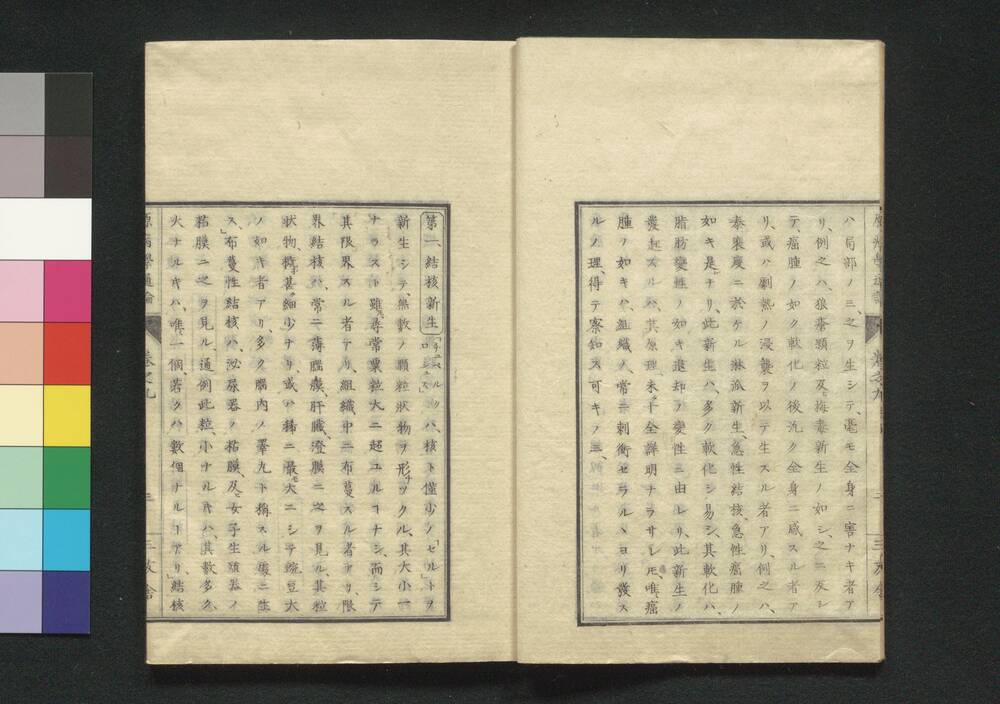 ハ局部ノミ、之ヲ生シテ、毫モ全身ニ害ナキ者ア
リ、例之ハ、狼瘡顆粒及ヒ梅毒新生ノ如シ、之ニ反シ
テ、癌腫ノ如ク軟化ノ後汎ク全身ニ感スル者ア
リ、或ハ劇熱ノ浸襲ヲ以テ生スル者アリ、例之ハ、
泰東度ニ於ケル淋派新生、急性結核、急性癌腫ノ
如キ是ナリ、此新生ハ、多ク軟化シ易シ、其軟化ハ、
脂肪變性ノ如キ退却ノ變性ニ由レリ、此新生ノ
發起スルハ、其原理、未タ全ク詳明ナラサレ𪜈、唯、癌
腫ノ如キハ、組織ノ、常ニ刺衝セラルヽヨリ發ス
ルノ理、得テ察知ス可キノミ、
第一結核新生
ハ核ト僅少ノ「セルトヲ
新生シテ、無數ノ顆粒狀物ヲ形ツクル、其大小一
ナラスト雖𪜈、尋常粟粒大ニ超ユルヿナシ、而シテ
其限界スル者アリ、組織中ニ布蔓スル者アリ、限
界結核ハ、常ニ薄腦膜、肝臟、澄膜ニ之ヲ見ル、其粒
狀物、極テ甚タ細少ナリ、或ハ稀ニ最モ大ニシテ豌豆大
ノ如キ者アリ、多ク腦内ノ睪九ト稱スル處ニ生
ス、布蔓性結核ハ、泌尿器ノ粘膜、及ヒ女子生殖器ノ
粘膜ニ之ヲ見ル、通例此粒、小ナル𪜈ハ、其數多ク、
大ナル𪜈ハ、唯、一個、若クハ數個ナルヿアリ、結核
原病學通論
卷之九
三友舍